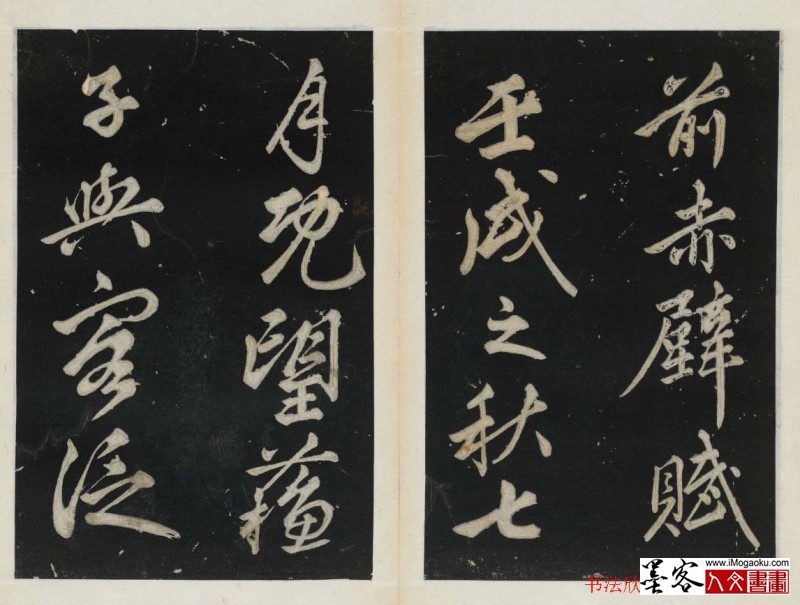 前赤壁賦
壬戌之秋七
月既望蘓
子與客泛
书法欣
墨客
人文書畫
www.iMogaoku.com